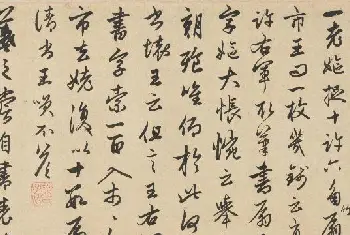 一老姥捉十許六角扇
市王問一枚幾錢云直
許右軍取筆書扇
字姥大悵惋云舉
朝飱唯仰於此何
書壞王云但言王右
書字索一百入市
市去姥復以十數扇
請書王笑不答
羲之常自書表